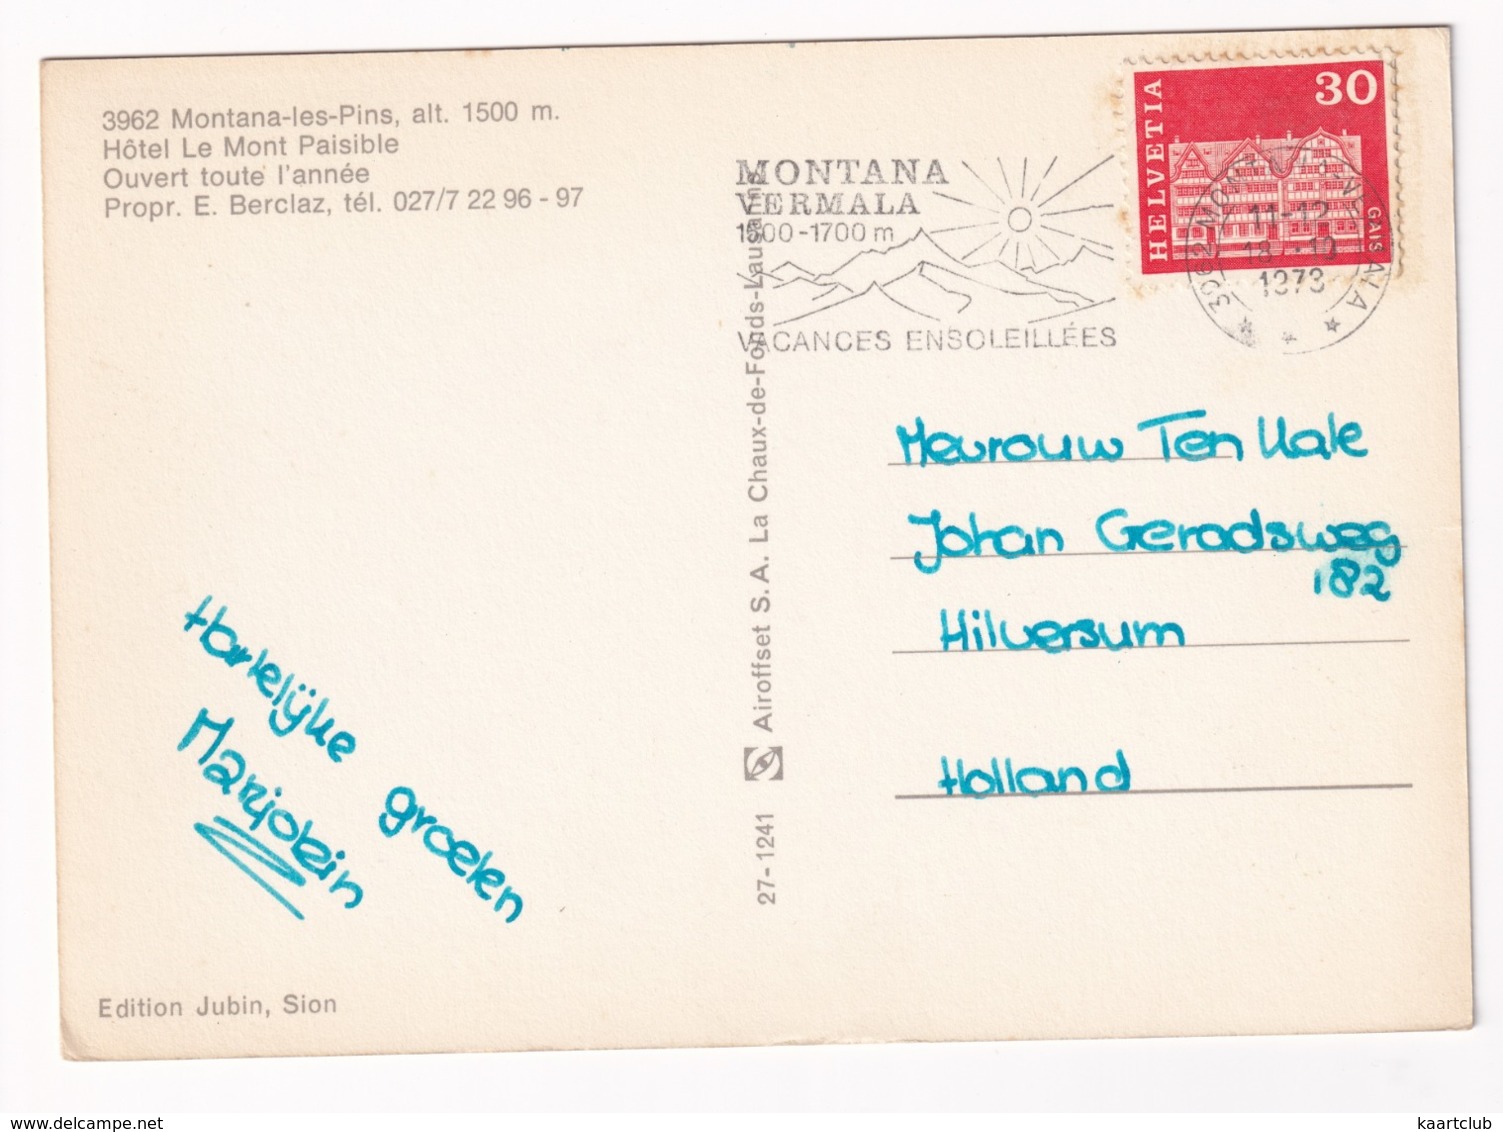 3962 Montana-les-Pins, alt. 1500 m.
Hôtel Le Mont Paisible
Ouvert toute l'année
Propr. E. Berclaz, tél. 027/7 22 96 - 97
MONTANA
VERMALA
1500-1700 m
VACANCES ENSOLEILLÉES
HELVETIA
30
GAIS
11-12
18.-10
1973
Mevrouw Ten Kate
Johan Geradsweg
182
Hilversum
Holland
Hartelijke groeten
Marjolein
27-1241
Airoffset S. A. La Chaux-de-Fonds-Lausanne
Edition Jubin, Sion
delcampe.net
kaartclub